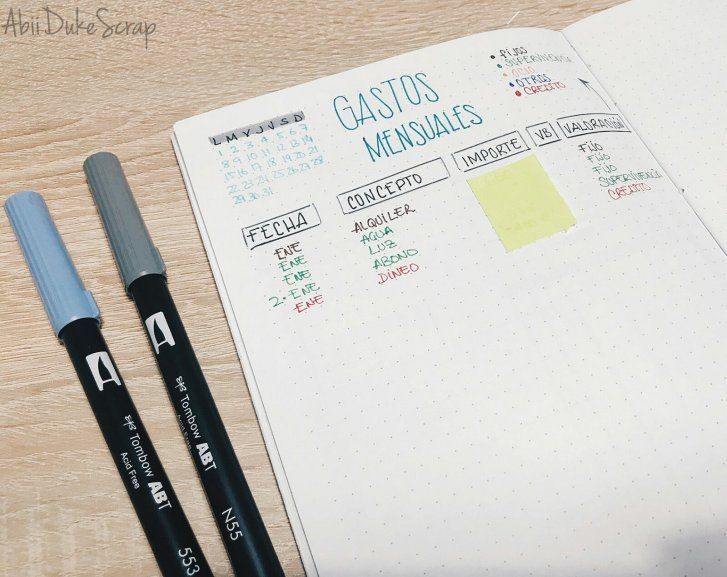 AbiiDukeScrap
GASTOS
MENSUALES
• FIJOS
• SUPERVIVENCIA
• OCIO
• OTROS
• CREDITO
L M X J V S D
1 2 3 4 5 6 7
8 9 10 11 12 13 14
15 16 17 18 19 20 21
22 23 24 25 26 27 28
29 30 31
FECHA CONCEPTO IMPORTE VB VALORACIÓN
ENE ALQUILER FIJO
ENE AGUA FIJO
ENE LUZ FIJO
2-ENE ABONO SUPERVIVENCIA
ENE DINEO CREDITO
Tombow ABT
Acid Free
553
Tombow ABT
Acid Free
N55